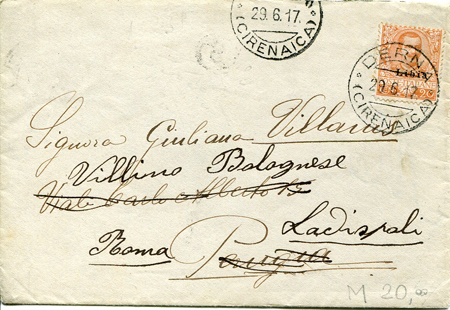 29.6.17.
(CIRENAICA)
DERNA
LIBIA
29.6.17
(CIRENAICA)
Signora Giuliana Villani
Villino Bolognese
Viale Carlo Alberto 15
Ladispoli
Roma
M 20,00